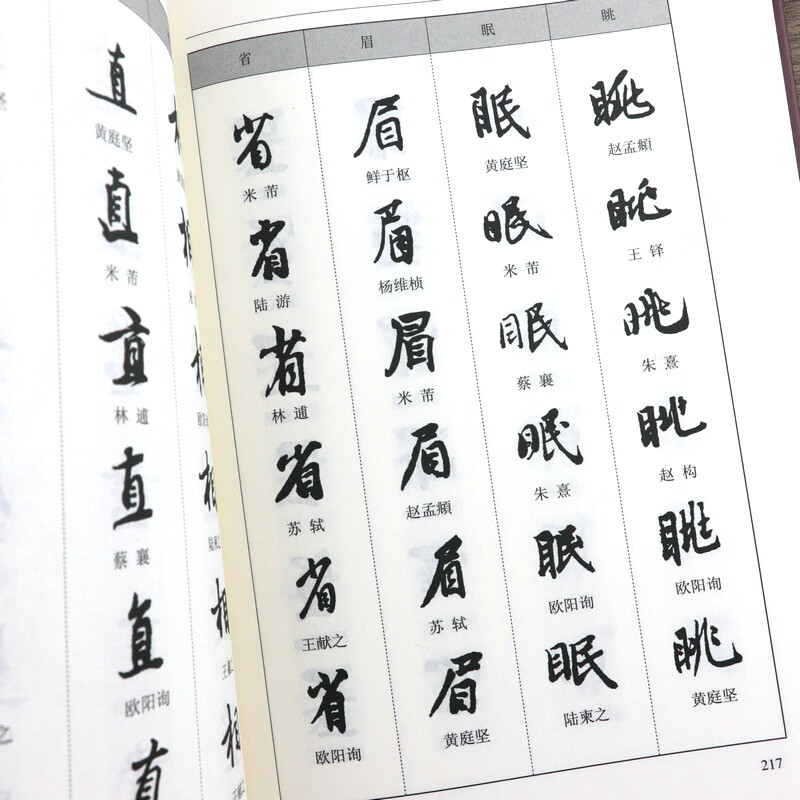 直
黄庭坚
直
米 芾
直
林 逋
直
蔡 襄
直
欧阳询
直
省 眉 眠 眺
省 眉 眠 眺
米 芾 鲜于枢 黄庭坚 赵孟頫
省 眉 眠 眺
陆 游 杨维桢 米 芾 王 铎
省 眉 眠 眺
林 逋 米 芾 蔡 襄 朱 熹
省 眉 眠 眺
苏 轼 赵孟頫 朱 熹 赵 构
省 眉 眠 眺
王献之 苏 轼 欧阳询 欧阳询
省 眉 眠 眺
欧阳询 黄庭坚 陆柬之 黄庭坚
217